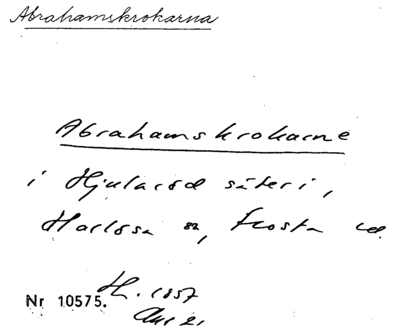 Abrahamskrokarna
Abrahamskrokarne
i Hjularöd säteri,
Harlösa sn, Frosta hd.
Nr 10575. H. 1857